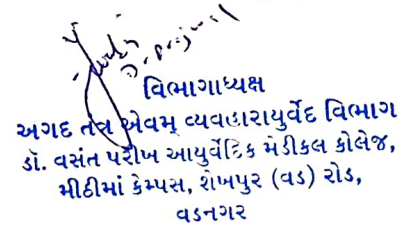 વિભાગાધ્યક્ષ
અગદ તંત્ર એવમ્ વ્યવહારાયુર્વેદ વિભાગ
ડૉ. વસંત પરીખ આયુર્વેદિક મેડીકલ કોલેજ,
મીઠીમાં કેમ્પસ, શેખપુર (વડ) રોડ,
વડનગર